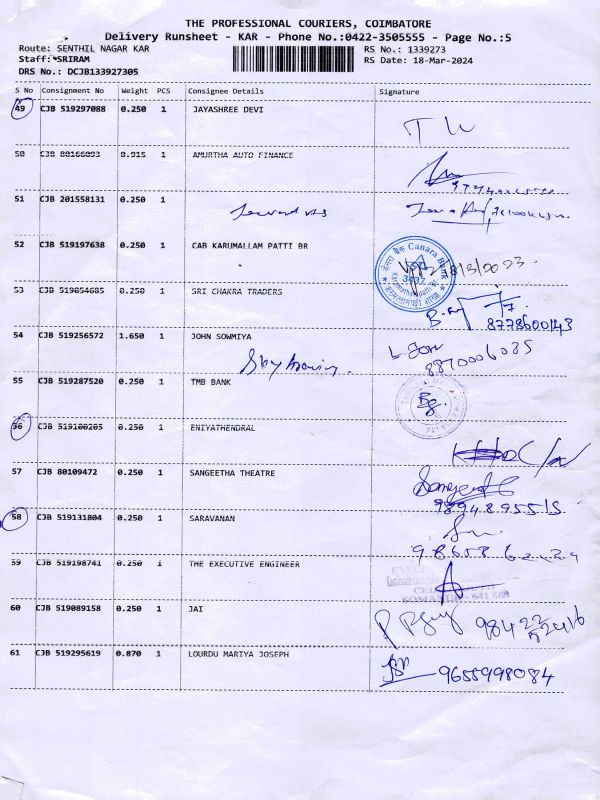 THE PROFESSIONAL COURIERS, COIMBATORE
Delivery Runsheet - KAR - Phone No.:0422-3505555 - Page No.:5
Route: SENTHIL NAGAR KAR RS No.: 1339273
Staff:*SRIRAM RS Date: 18-Mar-2024
DRS No.: DCJB133927305
S No Consignment No Weight PCS Consignee Details Signature
49 CJB 519297088 0.250 1 JAYASHREE DEVI
50 CJB 80166093 0.915 1 AMURTHA AUTO FINANCE
51 CJB 201558131 0.250 1
52 CJB 519197638 0.250 1 CAB KARUMALLAM PATTI BR
Canara Bank
18/3/2023
53 CJB 519054685 0.250 1 SRI CHAKRA TRADERS
8778600143
54 CJB 519256572 1.650 1 JOHN SOWMIYA
8870006035
55 CJB 519287520 0.250 1 TMB BANK
56 CJB 519100205 0.250 1 ENIYATHENDRAL
57 CJB 80109472 0.250 1 SANGEETHA THEATRE
9894895515
58 CJB 519131804 0.250 1 SARAVANAN
59 CJB 519198741 0.250 1 THE EXECUTIVE ENGINEER
60 CJB 519089158 0.250 1 JAI
61 CJB 519295619 0.870 1 LOURDU MARIYA JOSEPH
9655998084